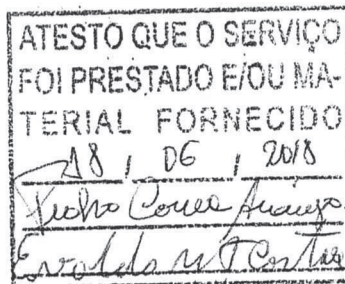 ATESTO QUE O SERVIÇO
FOI PRESTADO E/OU MA-
TERIAL FORNECIDO
18 , 06 , 2018
Pedro Correa Araujo